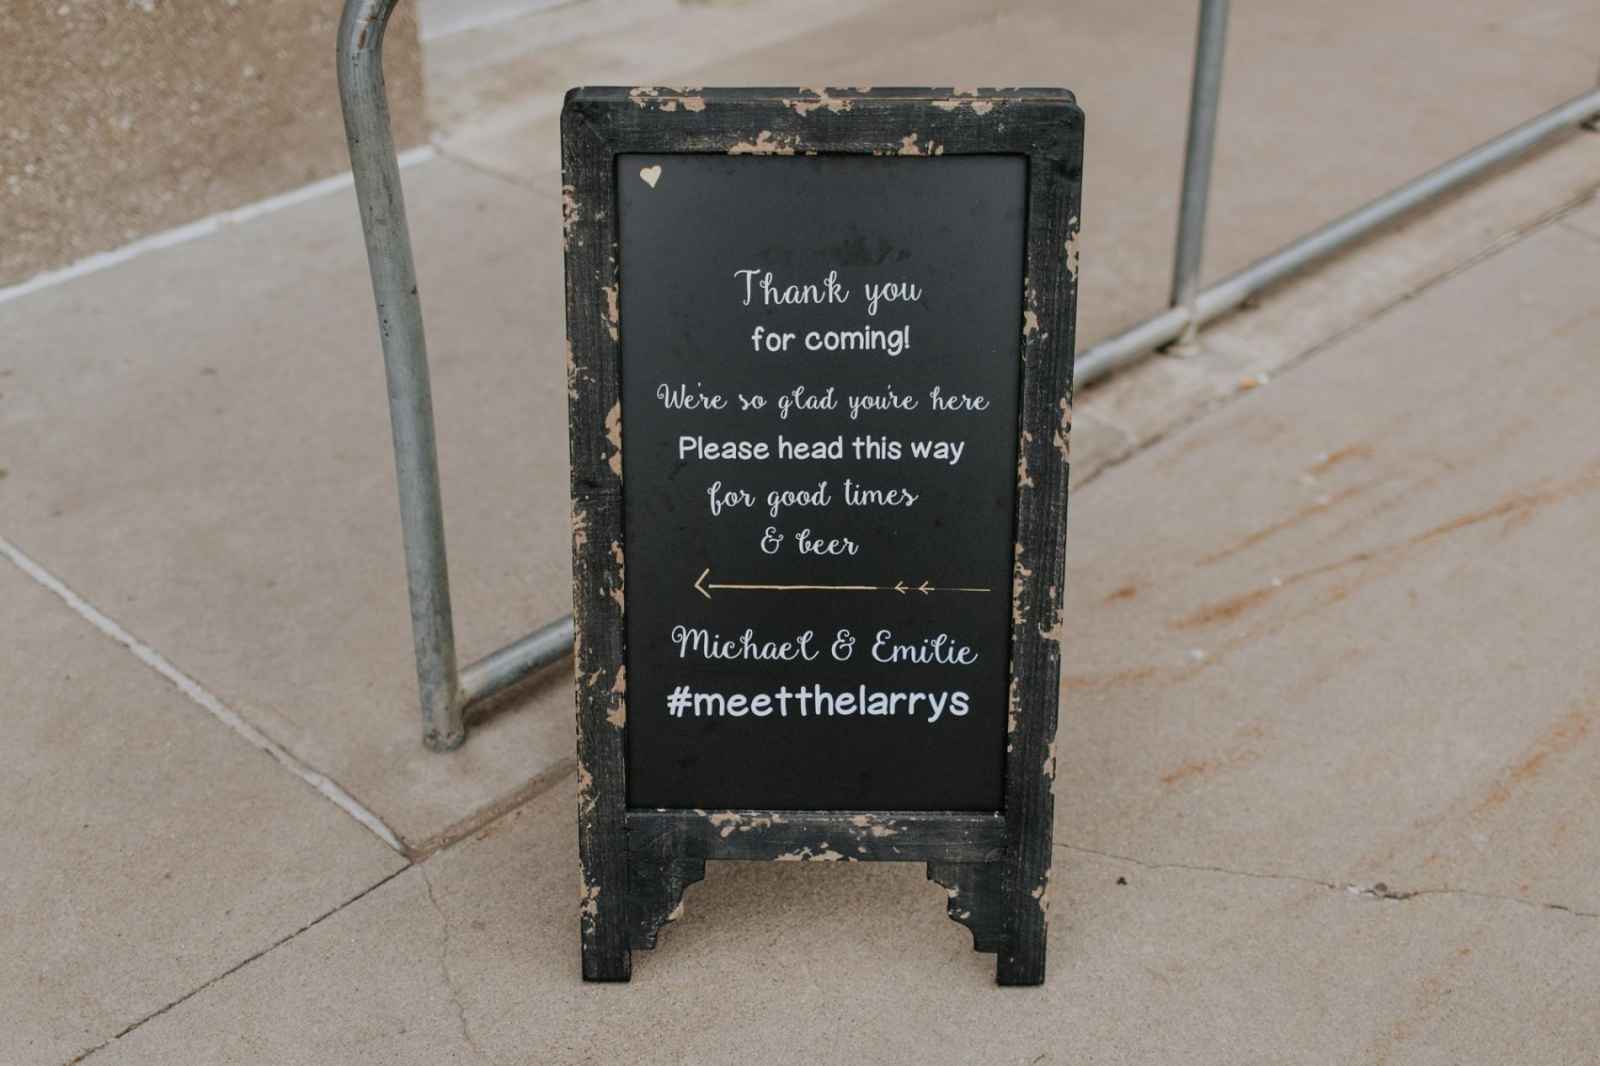 Thank you
for coming!
We're so glad you're here
Please head this way
for good times
& beer
Michael & Emilie
#meetthelarrys